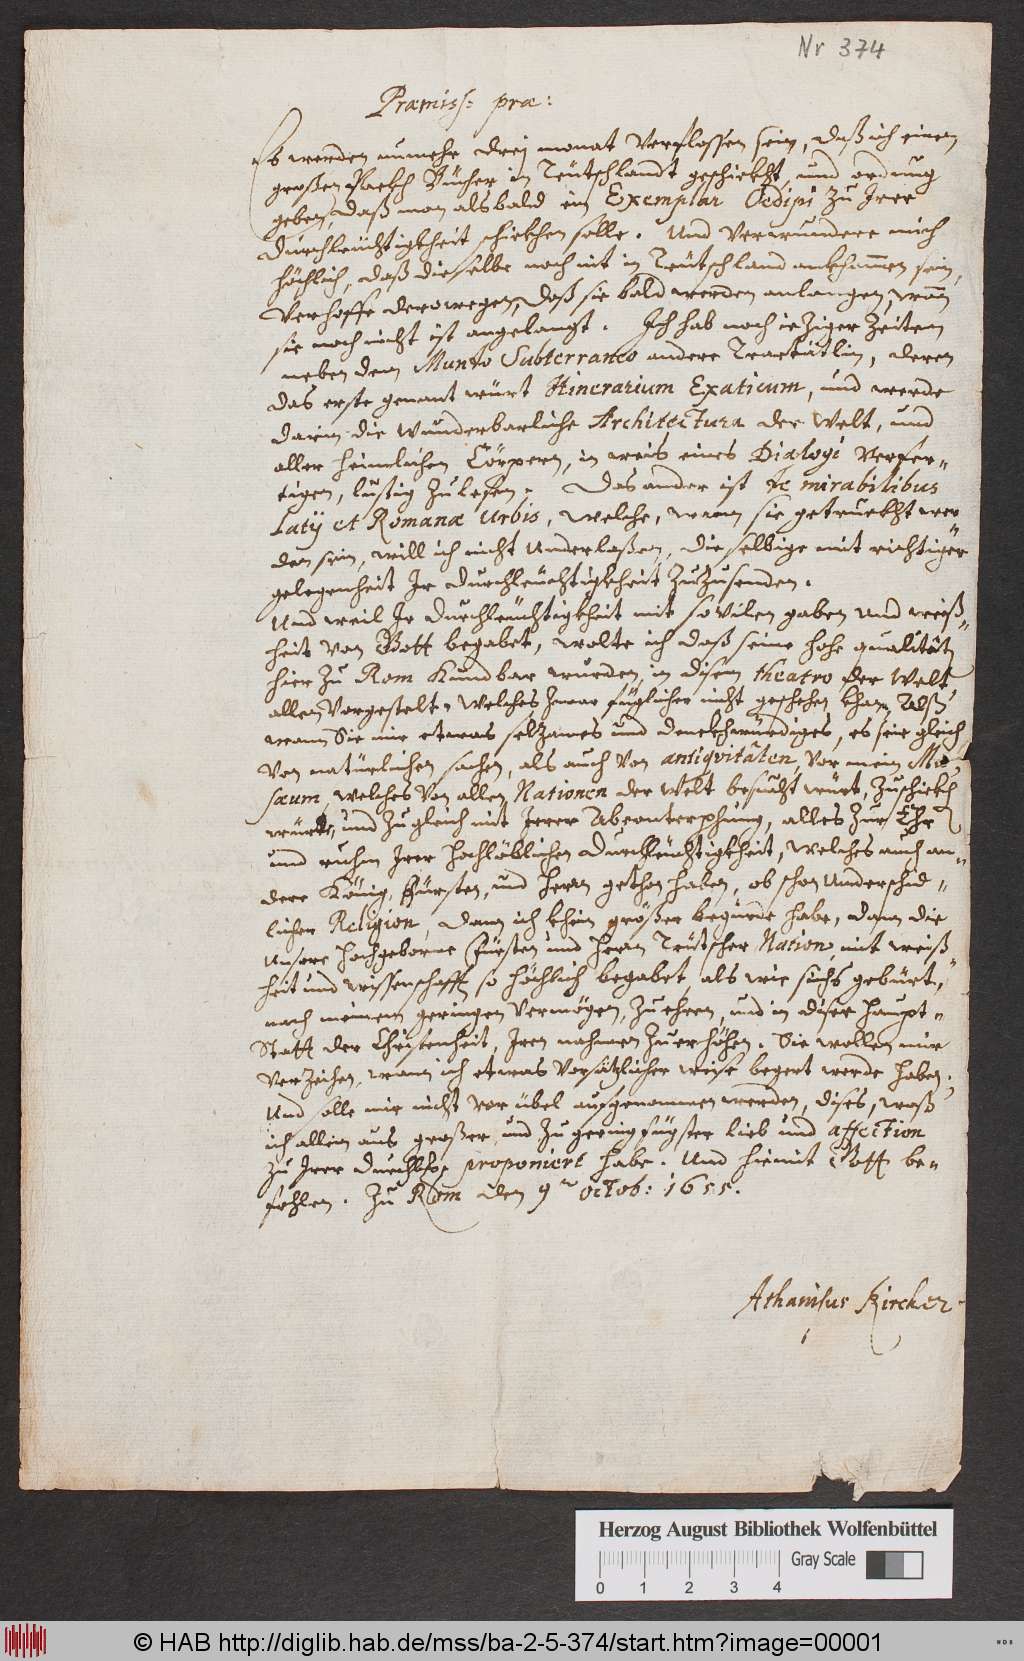 Nr 374
Præmiss: præ:
Es werden numehr drey monat verflossen sein, daß ich einen
großen Packh Bücher in Teütschlandt geschickht, und ordnung
geben, daß man alsbald ein Exemplar Oedipi zu Irer
Durchleüchtigkheit schickhen solle. Und verwundere mich
höchlich, daß dieselbe noch nit in Teütschland ankhom̃en sein,
verhoffe derowegen, daß sie bald werden anlangen, wañ
sie noch nicht ist angelangt. Ich hab noch ieziger Zeiten
neben dem Mundo Subterraneo andere Tractätlin, deren
das erste genant würt Itinerarium Exaticum, und werde
darin die wunderbarliche Architectura der Welt, und
aller himlischen Cörpern, in weis eines Dialogi verfer-
tigen, lustig zu lesen. Das ander ist de mirabilibus
Latij et Romanæ Urbis, welche, wann sie getruckht wer
den sein, will ich nicht underlaßen, dieselbige mit richtiger
gelegenheit Ir Durchleüchtigkheit zuzusenden.
Und weil Ir Durchleüchtigkheit mit sovilen gaben und weiß-
heit von Gott begabet, wolte ich daß seine hohe qualitäten
hier zu Rom kundbar wurden, in disem theatro der Welt
allen vorgestelt. welches zwar füglicher nicht geschehen khan, Alß
wann Sie mir etwas selzames und denckhwürdiges, es seie gleich
von natürlichen sachen, als auch von antiqvitäten, vor mein Mu-
sæum, welches von allen Nationen der Welt besucht würt, zuschickh
würde, und zugleich mit Irer Abconterphung, alles zur Ehr
und ruhm Irer Hochlöblichen Durchleüchtigkheit, welches auch an-
dere König, Fürsten, und Herrn gethon haben, ob schon underschid-
licher Religion, dann ich khein größer begürde habe, dann die
unsere hochgeborne Fürsten und Herrn Teütscher Nation, mit weiß
heit und wissenschafft so höchlich begabet, als wie sichs gebürt,
nach meinem geringen vermögen, zu ehren, und in diser Haupt-
Statt der Christenheit, Iren nahmen zu erhöhen. Sie wollen mir
verzeihen, wann ich etwas vorsätzlicher weise begert werde haben.
Und solle mir nicht vor übel aufgenommen werden, dises, waß
ich allein aus großer und zu geringfügster lieb und affection
zu Irer Durchl: proponiert habe. Und hiemit Gott be-
fohlen. Zu Rom den 9 octob: 1655.
Athanisus Kircher
Herzog August Bibliothek Wolfenbüttel
Gray Scale
0 1 2 3 4
© HAB http://diglib.hab.de/mss/ba-2-5-374/start.htm?image=00001